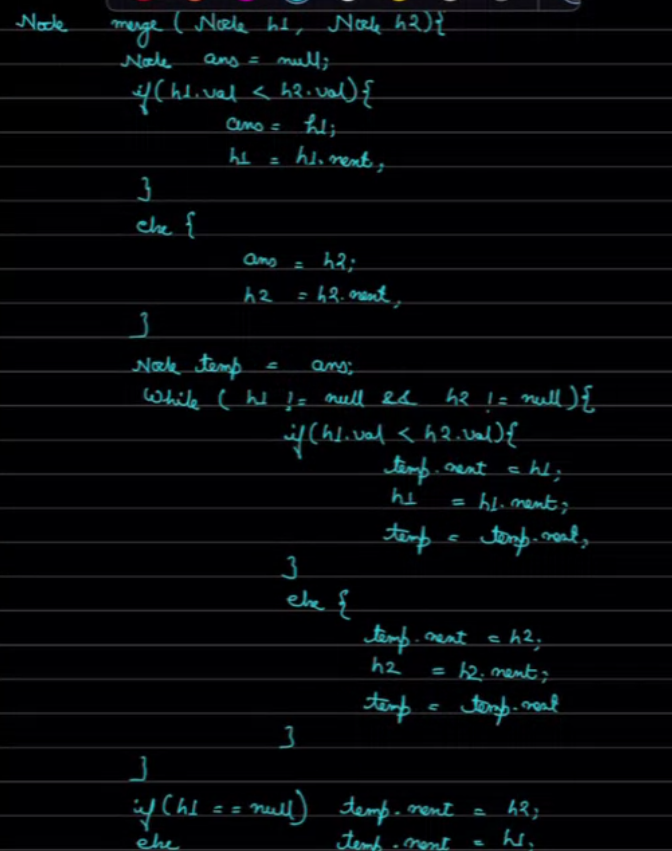 Node merge ( Node h1, Node h2){
Node ans = null;
if(h1.val < h2.val){
ans = h1;
h1 = h1.next;
}
else {
ans = h2;
h2 = h2.next;
}
Node temp = ans;
While ( h1 != null && h2 != null){
if(h1.val < h2.val){
temp.next = h1;
h1 = h1.next;
temp = temp.next;
}
else {
temp.next = h2;
h2 = h2.next;
temp = temp.next
}
}
if(h1 == null) temp.next = h2;
else temp.next = h1;